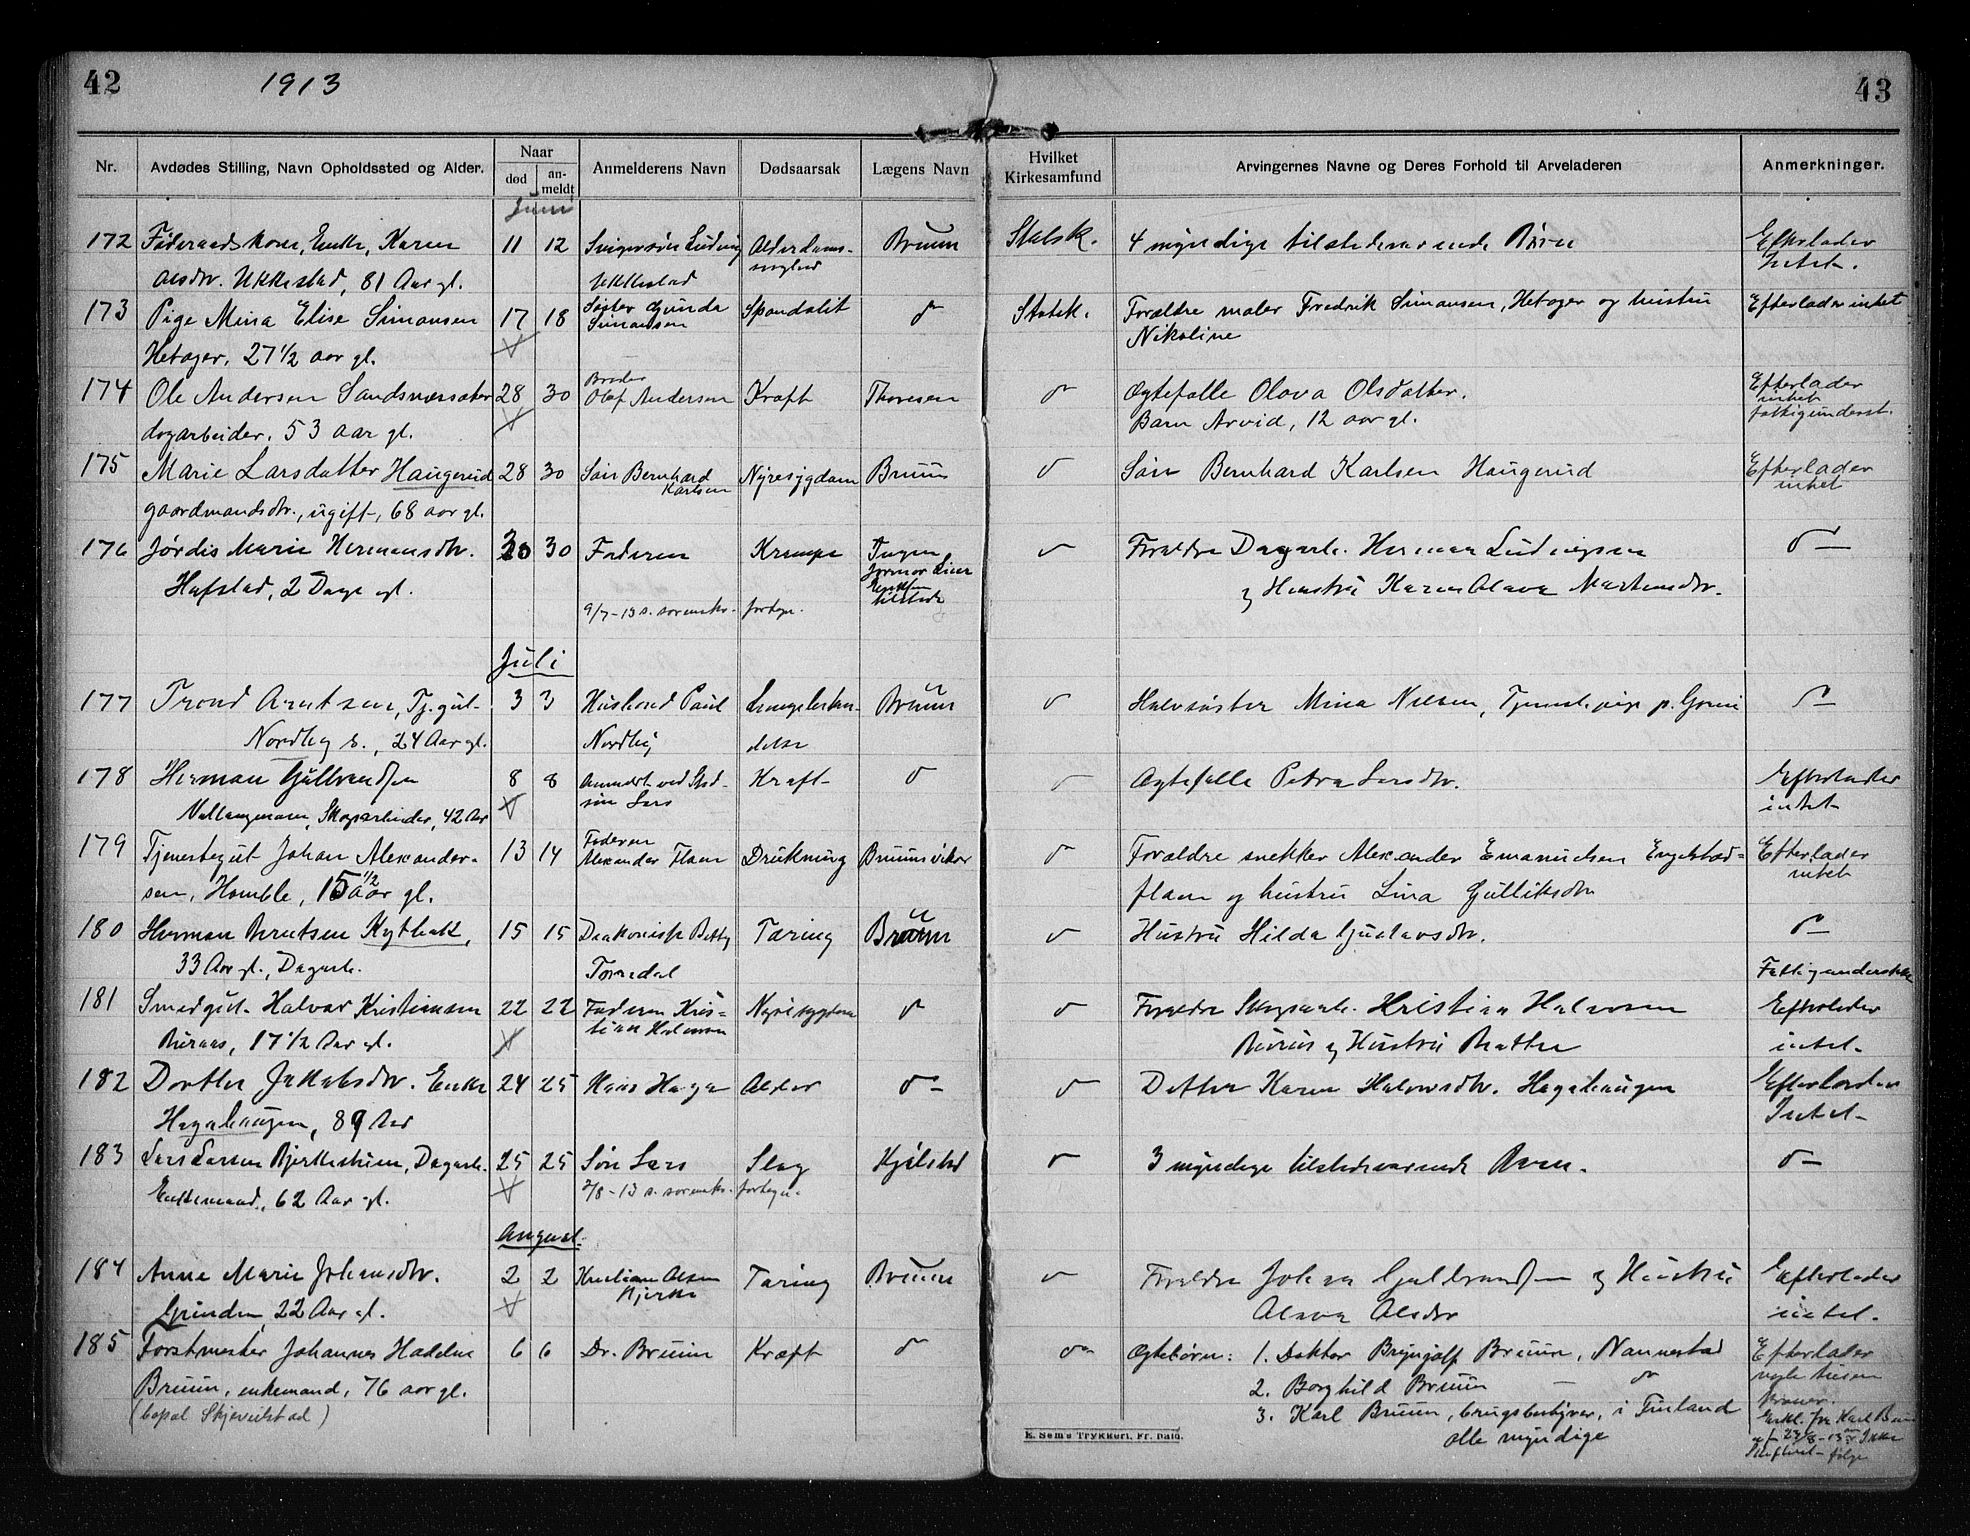 42 1913 43
Nr. Avdødes Stilling, Navn Opholdssted og Alder. Naar død an-meldt Anmelderens Navn Dødsaarsak Lægens Navn Hvilket Kirkesamfund Arvingernes Navne og Deres Forhold til Arveladeren Anmerkninger.
Juni
172 Føderaadskone, Enke, Karen 11 12 Svigersøn Ludvig Alderdoms- Bruun Statsk. 4 myndige tilstedeværende Børn Efterlader
Olsdtr. Ukkestad, 81 Aar gl. Ukkestad Intet.
173 Pige Mina Elise Simonsen 17 18 Søster Gunda Spondalit Statsk. Forældre maler Fredrik Simonsen, Hetager og hustru Efterlader intet
Simonsen Nikoline
Hetager, 27 1/2 aar gl.
174 Ole Andersen Sandsnæssæter 28 30 Broder Olof Andersen Kræft Thoresen Ægtefælle Olava Olsdatter. Efterlader intet
dagarbeider, 53 aar gl. Barn Arvid, 12 aar gl. fattigunderst.
175 Marie Larsdatter Haugerud 28 30 Søn Bernhard Karlsen Nyresygdom Bruun Søn Bernhard Karlsen Haugerud Efterlader
gaardmandsdtr., ugift, 68 aar gl. intet
176 Jørdis Marie Hermansdtr. 30 30 Faderen Krampe Ingen Forældre Dagarb. Herman Ludvigsen
Hafstad, 2 Dage gl. Jormor tilstede og Hustru Karen Olava Martinsdtr.
9/7-13 s. sorenskr. fortegn.
Juli
177 Trond Arntsen, Tj.gut 3 3 Husbond Paul Lungebeten- Bruun Halvsøster Mina Nilsen, Tjenestepige p.
Nordby s., 24 Aar gl. Nordby delse
178 Herman Gulbrandsen 8 8 Anmeldt ved Sted- Kræft Ægtefælle Petra Larsdtr. Efterlader
Skogarbeider, 42 Aar søn Lars intet
179 Tjenestegut Johan Alexander- 13 14 Faderen Alexander Flaen Drukning Bruuns vikar Forældre snekker Alexander Emanuelsen Engelstad- Efterlader
sen, Homble, 15 1/2 aar gl. flaen og hustru Lina Gulliksdtr intet
180 Herman Berntsen 15 15 Diakonisse Betty Tæring Bruun Hustru Hilda Gustavsdtr.
33 Aar gl., Dagarb. Torredal Fattigunderst.
181 Smedgut Halvor Kristiansen 22 22 Faderen Kris- Nyresygdom Forældre Skogsarb. Kristian Halvorsen Efterlader
Buraas, 17 1/2 Aar gl. tian Halvorsen Buraas og Hustru Bratte intet
182 Dorthe Jakobsdtr. Enke 24 25 Hans Haga Alder Datter Karen Halvorsdtr. Hagahaugen Efterlader
Hagahaugen, 89 Aar Intet
183 Lars Larsen Bjerkeshuen, Dagarb. 25 25 Søn Lars Slag Kjølstad 3 myndige tilstedeværende Børn.
Enkemand, 62 Aar gl. 2/8-13 s. sorensks. fortegn.
August.
184 Anne Marie Johansdtr. 2 2 Kristian Olsen Tæring Bruun Forældre Johan Gulbrandsen og Hustru Efterlader
Grinden, 22 Aar gl. Bjerke Olava Olsdtr intet.
185 Forstmester Johannes Hadelin 6 6 Dr. Bruun Kræft Ægtebørn: 1. Doktor Brynjolf Bruun, Nannestad Efterlader
Bruun, enkemand, 76 aar gl. 2. Borghild Bruun
(bopæl Skjevilstad) 3. Karl Bruun, brugsbestyrer, i Finland
alle myndige Erkl. fra Karl Bruun
E. Sem's Trykkeri, Fr. hald.